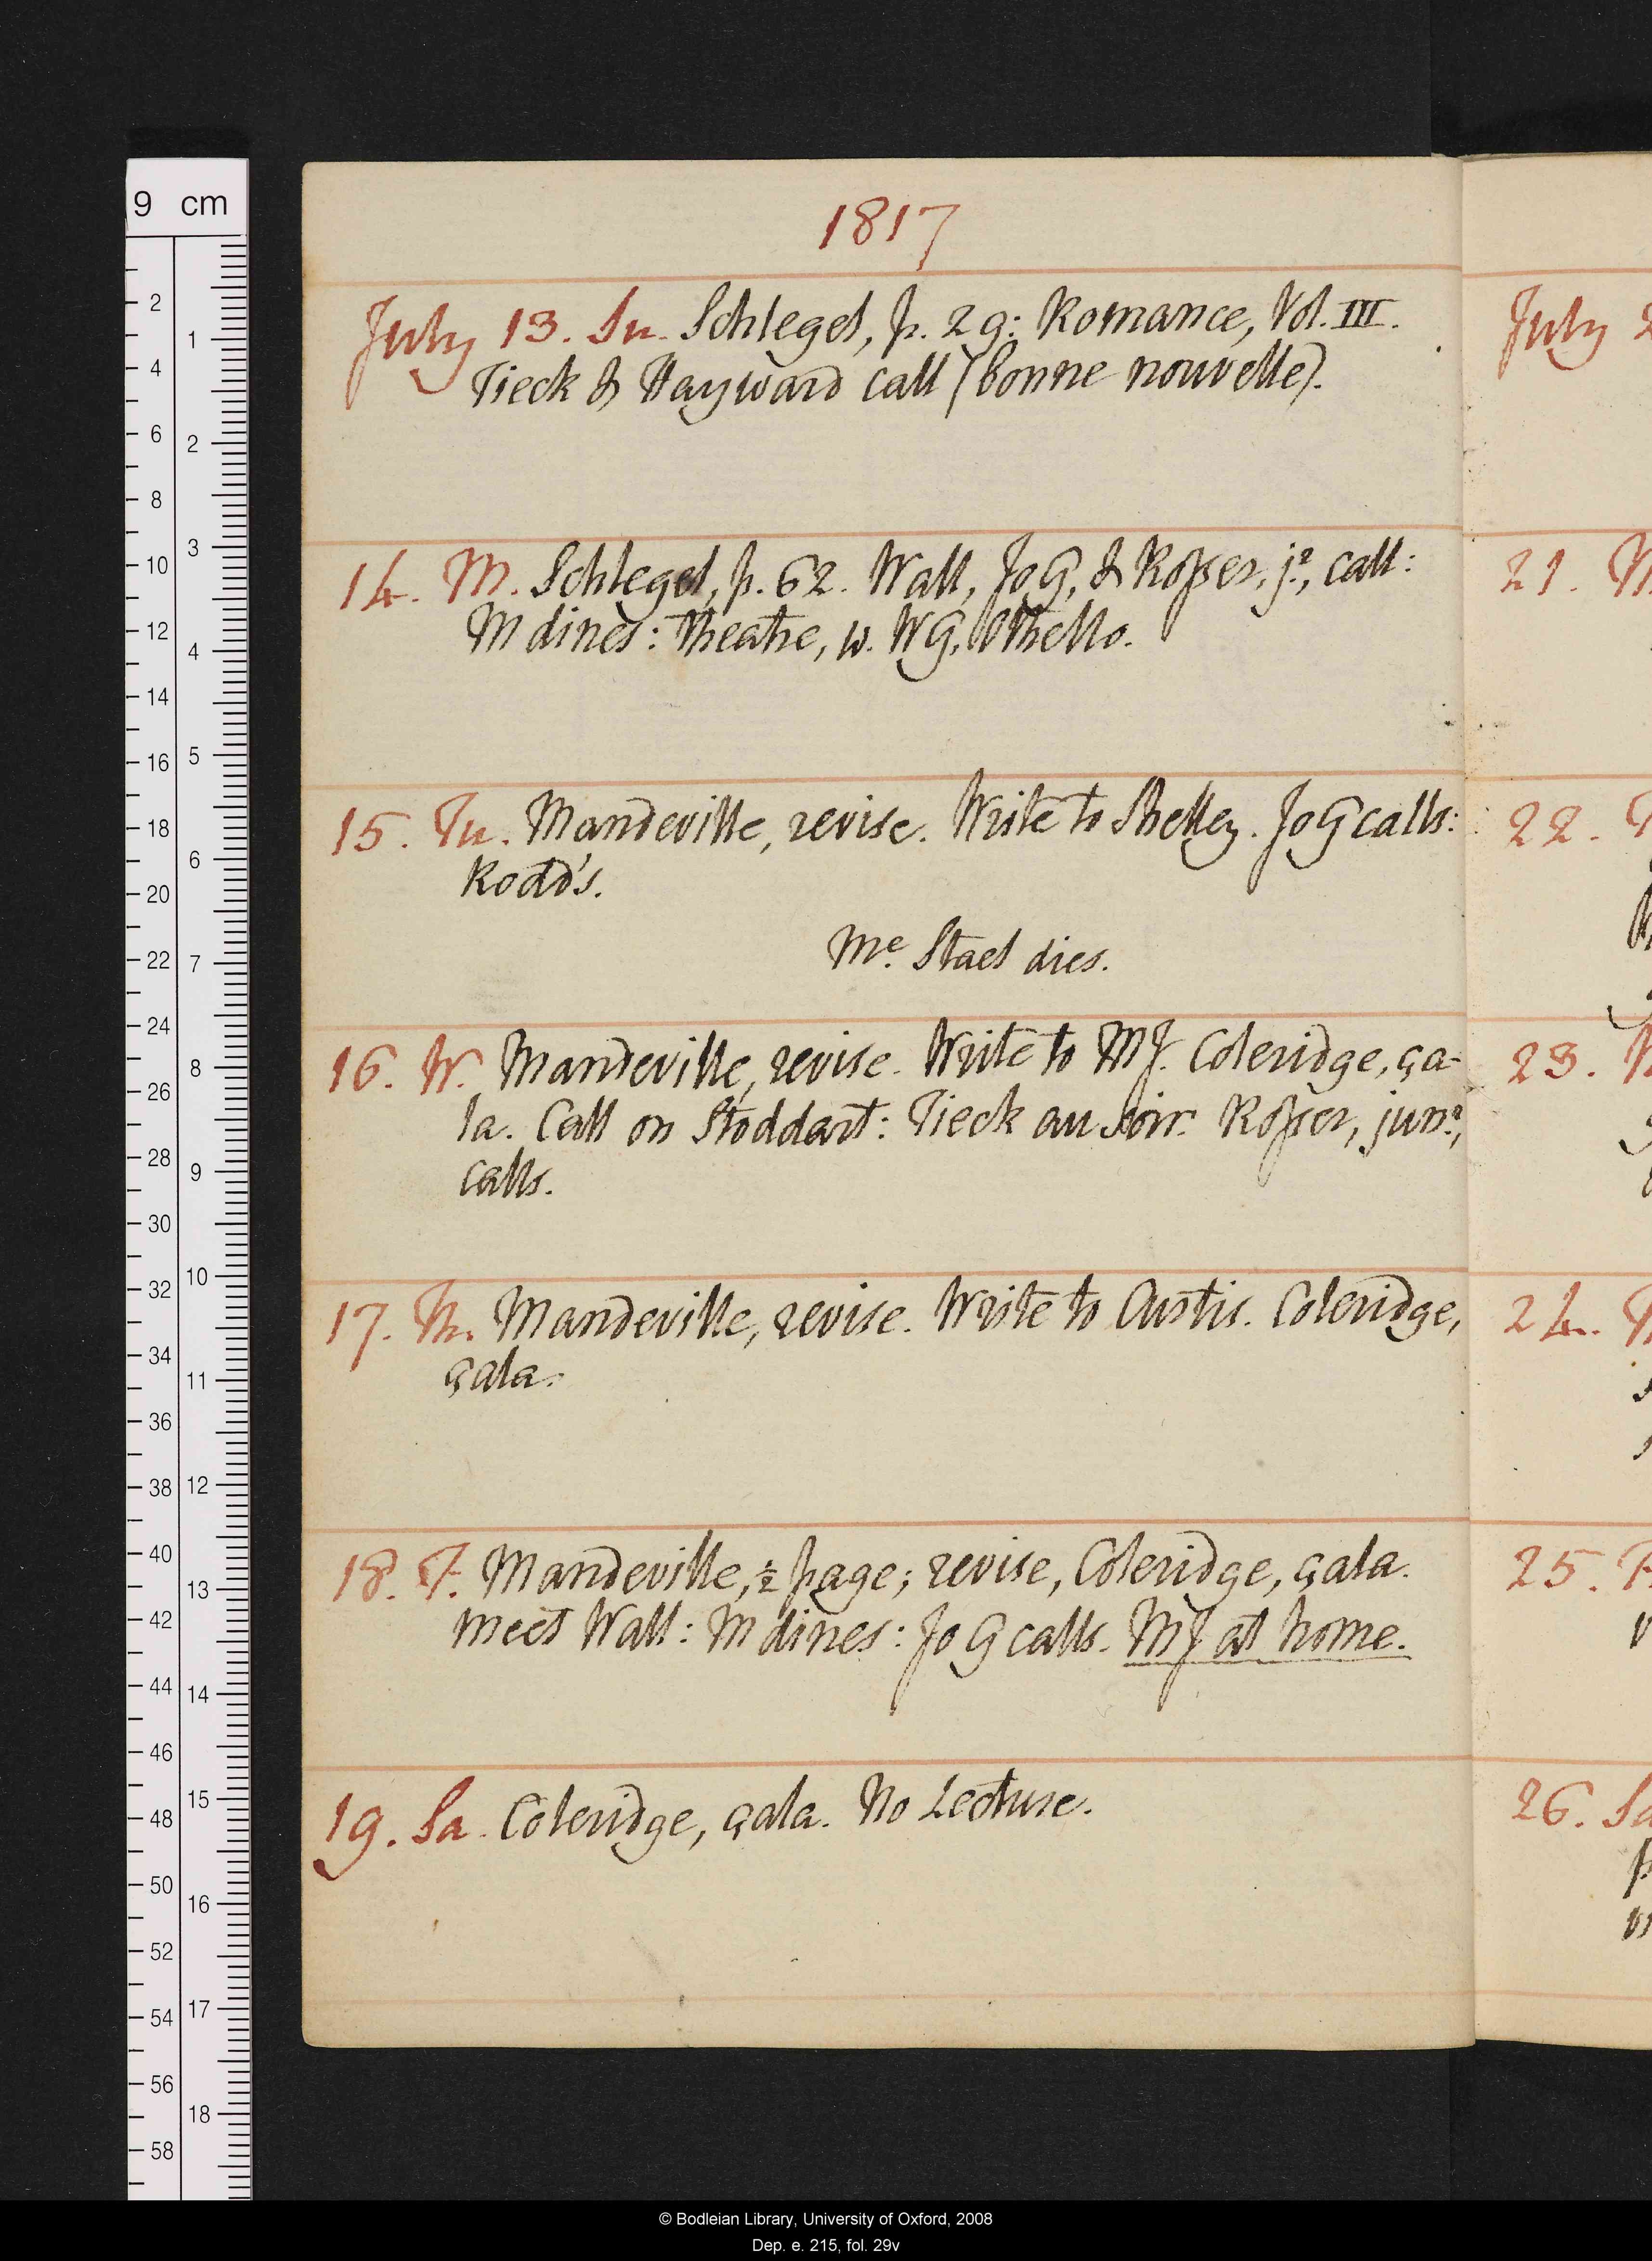 1817
July 13. Su. Schlegel, p. 29: Romance, Vol. III.
Tieck & Hayward call (bonne nouvelle).
14. M. Schlegel, p. 62. Wall, Jo G, & Rosser, jr, call:
M dines: Theatre, w. WG, Othello.
15. Tu. Mandeville, revise. Write to Shelley. Jo G calls:
Rodd's.
Me. Stael dies.
16. W. Mandeville, revise. Write to MJ. Coleridge, ça-
la. Call on Stoddart: Tieck au soir. Rosser, junr,
calls.
17. Th. Mandeville, revise. Write to Curtis. Coleridge,
çala.
18. F. Mandeville, ½ page; revise, Coleridge, çala.
Meet Wall: M dines: Jo G calls. MJ at home.
19. Sa. Coleridge, çala. No Lecture.
July 2
21. M
22. T
23. W
24. T
25. F
26. Sa
9 cm
2
4
6
8
10
12
14
16
18
20
22
24
26
28
30
32
34
36
38
40
42
44
46
48
50
52
54
56
58
1
2
3
4
5
6
7
8
9
10
11
12
13
14
15
16
17
18
© Bodleian Library, University of Oxford, 2008
Dep. e. 215, fol. 29v